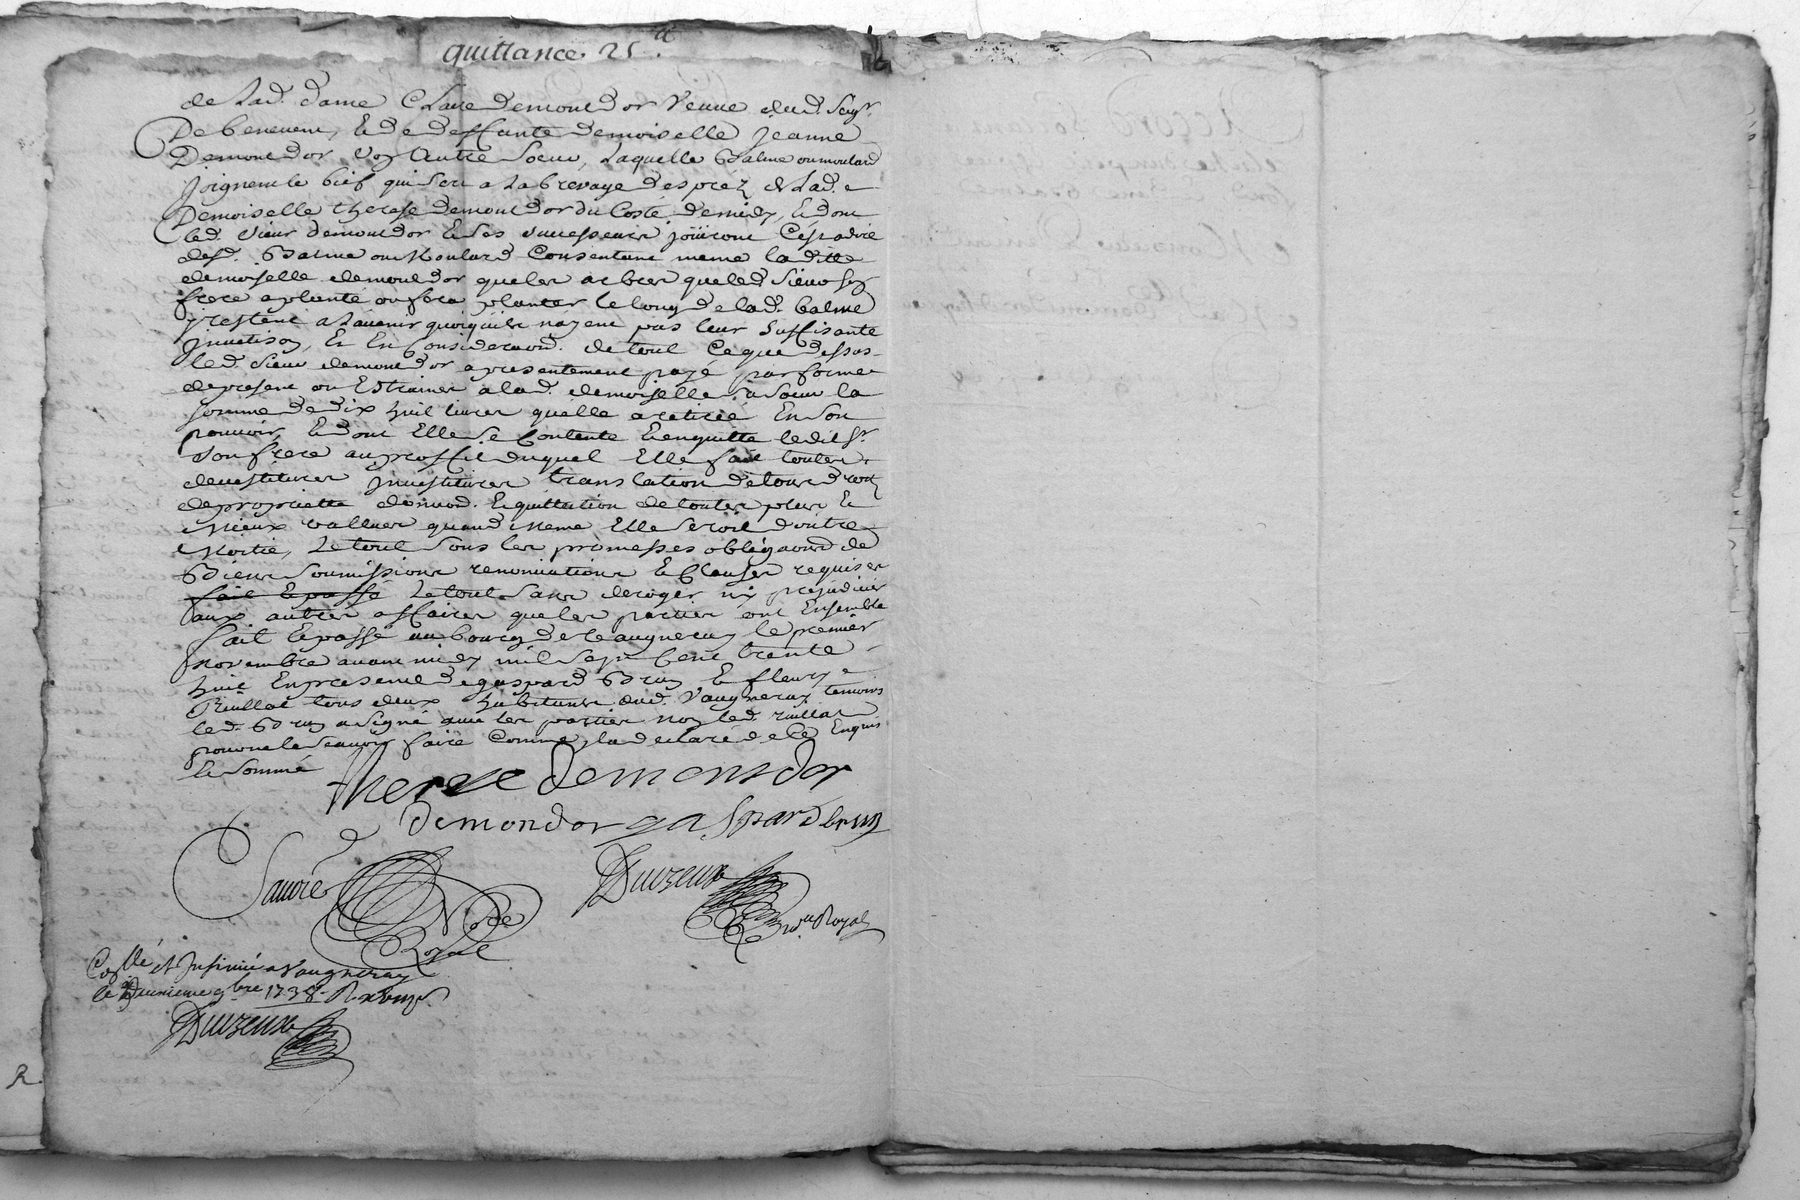 quittance 21 d
de lad. dame Claire demontdor veuve dud. Seigr.
De benevent, Et de deffunte demoiselle Jeanne
Demontdor Son Autre Soeur, Laquelle Balme ou moulard
Joignent le bief qui sert a Labrevage des prez de Lad.e
Demoiselle therese demontdor du Costé de midy, Et dont
led. Sieur demontdor et Ses Successeurs joüiront Cest a dire
desd. Balme ou Moulard Consentant meme la ditte
demoiselle demontdor que les arbres que led. Sieur Son
frere a planté ou fera planter le long de lad. balme
y restent a Lavenir quoiquils nayent pas leur Suffisante
Et En Consideraon. de tout Ceque dessus
led. Sieur demontdor a presentement payé par forme
de present ou Estraines a lad. demoiselle Sa Soeur la
Somme de dix huit livres quelle a retirée En Son
pouvoir, Et dont Elle Se Contente Et en quitte ledit Sr.
Son frere au proffit duquel Elle fait toutes
devestitures Jnvestitures translation de tous droits
de proprietté Et quittation de toutes plus Et
Mieux vallues quand Meme Elle Seroit doutre
Moitié, Le tout Sous les promesses obligaons de
Biens Soumissions renonciations Et Clauses requises
fait Et passé Le tout Sans deroger ny préjudicier
aux autres affaires que les parties ont Ensemble
fait Et passé au bourg de Vaugneray le premier
Novembre avant midy mil Sept Cent trente
huit En presence de gaspard Brun Et fleury
Riullat tous deux habitants dud. Vaugneray temoins
led. Brun a Signé avec les parties non led. riullat
pour ne le Scavoir faire Comme Jl a declaré de Ce Enquis
Et Sommé
Therese demontdor
Demondor gaspard brun
Sauvré
Nore
Royal
Duvzeux
Royal
Collé et Insinué a Vaugneray
le Deuxieme 9bre 1738
Duvzeux
R.